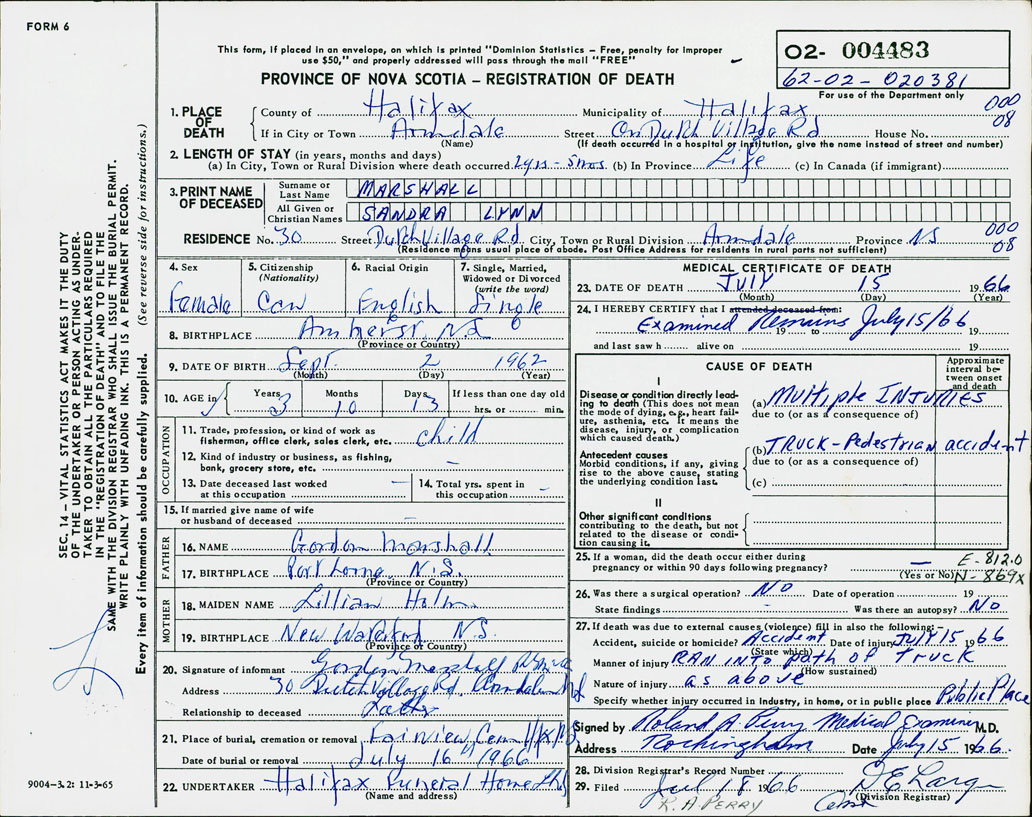 FORM 6
This form, if placed in an envelope, on which is printed "Dominion Statistics – Free, penalty for improper
use $50," and properly addressed will pass through the mail "FREE"
PROVINCE OF NOVA SCOTIA – REGISTRATION OF DEATH
O2- 004483
62-02-020381
For use of the Department only
000
08
1. PLACE OF DEATH
County of Halifax Municipality of Halifax
If in City or Town Armdale Street On Dutch Village Rd House No.
(Name) (If death occurred in a hospital or institution, give the name instead of street and number)
2. LENGTH OF STAY (in years, months and days)
(a) In City, Town or Rural Division where death occurred 2yrs - 5mos. (b) In Province Life (c) In Canada (if immigrant)
3. PRINT NAME OF DECEASED
Surname or Last Name MARSHALL
All Given or Christian Names SANDRA LYNN
RESIDENCE No. 30 Street Dutch Village Rd City, Town or Rural Division Armdale Province NS
000
08
(Residence means usual place of abode. Post Office Address for residents in rural parts not sufficient)
4. Sex Female
5. Citizenship (Nationality) Can
6. Racial Origin English
7. Single, Married, Widowed or Divorced (write the word) Single
8. BIRTHPLACE Amherst, N.S.
(Province or Country)
9. DATE OF BIRTH Sept. 2 1962
(Month) (Day) (Year)
10. AGE in Years 3 Months 10 Days 13 If less than one day old hrs. or min.
OCCUPATION
11. Trade, profession, or kind of work as fisherman, office clerk, sales clerk, etc. child
12. Kind of industry or business, as fishing, bank, grocery store, etc. –
13. Date deceased last worked at this occupation –
14. Total yrs. spent in this occupation –
15. If married give name of wife or husband of deceased –
FATHER
16. NAME Gordon Marshall
17. BIRTHPLACE Port Lorne N.S.
(Province or Country)
MOTHER
18. MAIDEN NAME Lillian
19. BIRTHPLACE New Waterford N.S.
(Province or Country)
20. Signature of informant Gordon Marshall
Address 30 Dutch Village Rd, Armdale
Relationship to deceased Father
21. Place of burial, cremation or removal Fairview Cem
Date of burial or removal July 16th 1966
22. UNDERTAKER Halifax Funeral Home
(Name and address)
MEDICAL CERTIFICATE OF DEATH
23. DATE OF DEATH JULY 15 1966
(Month) (Day) (Year)
24. I HEREBY CERTIFY that I attended deceased from:
Examined Remains July 15/66
19 to 19
and last saw h alive on 19
CAUSE OF DEATH
Approximate interval between onset and death
I
Disease or condition directly leading to death (This does not mean the mode of dying, e.g., heart failure, asthenia, etc. It means the disease, injury, or complication which caused death.)
(a) Multiple INJURIES
due to (or as a consequence of)
Antecedent causes
Morbid conditions, if any, giving rise to the above cause, stating the underlying condition last.
(b) TRUCK-Pedestrian accident
due to (or as a consequence of)
(c)
II
Other significant conditions
contributing to the death, but not related to the disease or condition causing it.
25. If a woman, did the death occur either during pregnancy or within 90 days following pregnancy? –
(Yes or No)
E-812.0
N-869x
26. Was there a surgical operation? NO Date of operation 19
State findings - Was there an autopsy? NO
27. If death was due to external causes (violence) fill in also the following:-
Accident, suicide or homicide? Accident Date of injury JULY 15 1966
(State which)
Manner of injury RAN INTO path of Truck
(How sustained)
Nature of injury as above
Specify whether injury occurred in Industry, in home, or in public place Public Place
Signed by Roland A. Perry Medical Examiner M.D.
Address Rockingham Date July 15 1966.
28. Division Registrar's Record Number
29. Filed Jul 18 1966
(Division Registrar)
R. A. PERRY
SEC. 14 – VITAL STATISTICS ACT MAKES IT THE DUTY
OF THE UNDERTAKER OR PERSON ACTING AS UNDER-
TAKER TO OBTAIN ALL THE PARTICULARS REQUIRED
IN THE "REGISTRATION OF DEATH" AND TO FILE THE
SAME WITH THE DIVISION REGISTRAR WHO SHALL ISSUE THE BURIAL PERMIT.
WRITE PLAINLY WITH UNFADING INK. THIS IS A PERMANENT RECORD.
Every item of information should be carefully supplied. (See reverse side for instructions.)
9004-3.2: 11-3-65